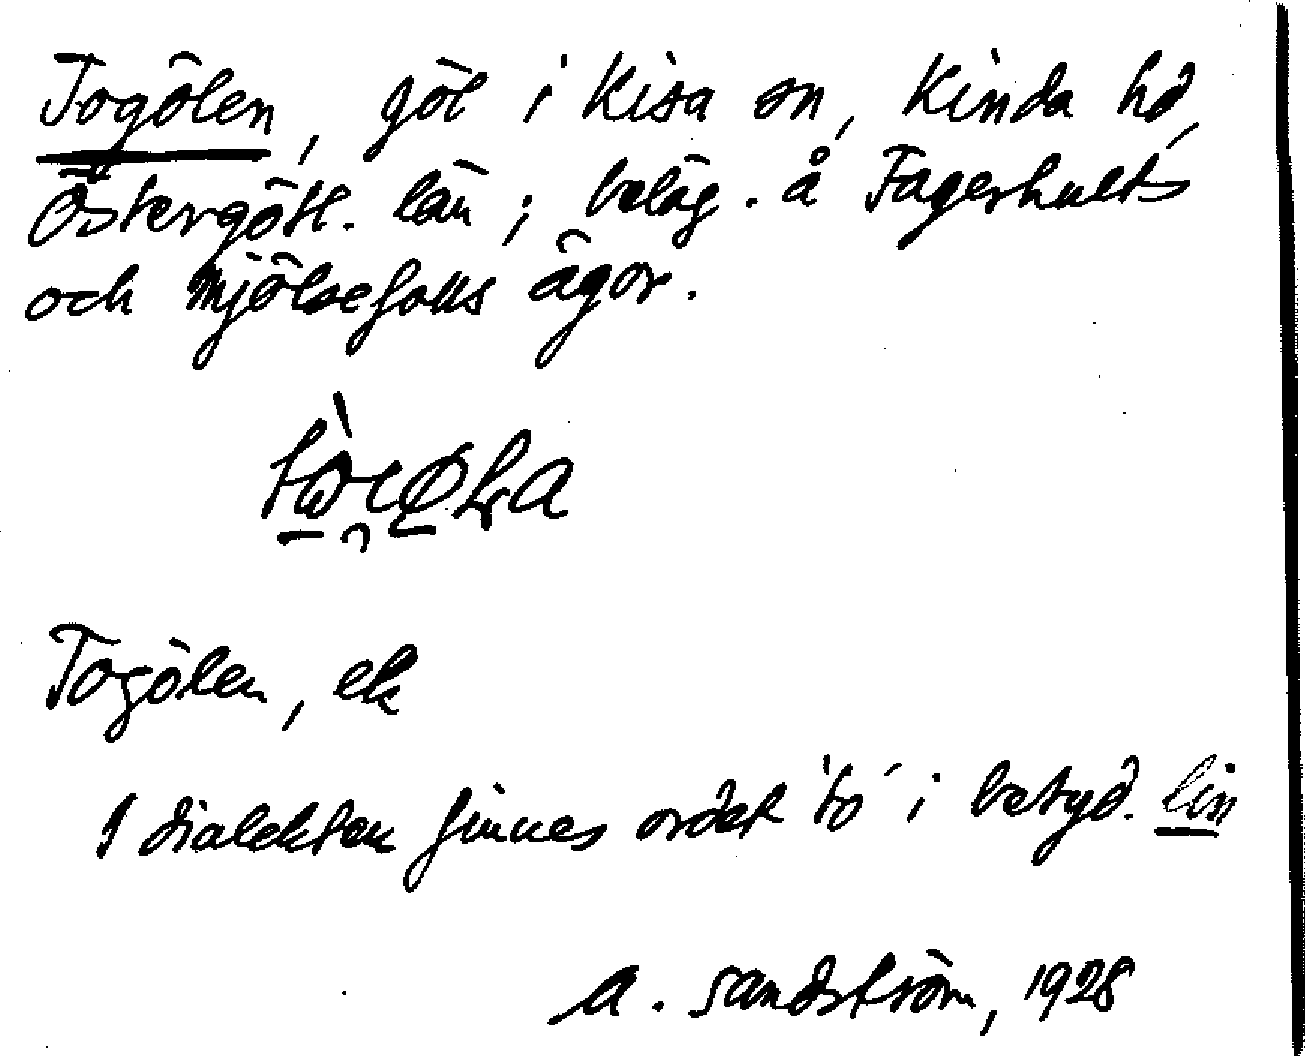 Togölen, göl i Kisa sn, Kinda hd,
Östergötl. län; beläg. å Fagerhults
och Mjölsefalls ägor.
Togölen, ek
I dialekten finnes ordet 'to' i betyd. lin
A. Sandström, 1928